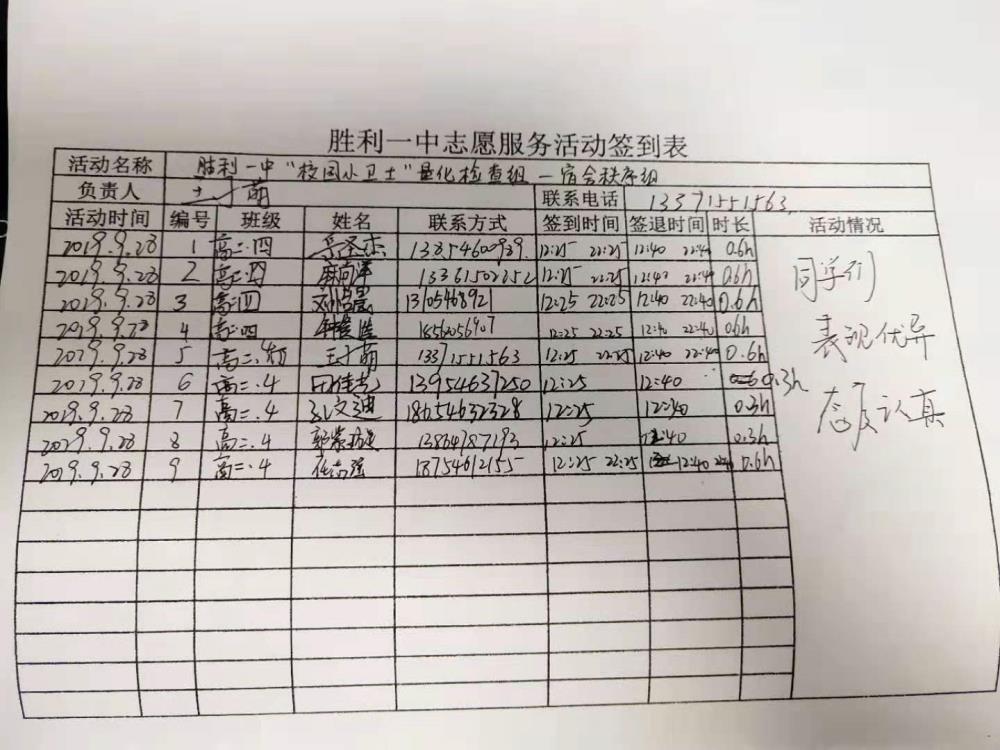 胜利一中志愿服务活动签到表
活动名称 胜利一中"校园小卫士"量化检查组一宿舍秩序组
负责人 王于萌 联系电话 13371551563
活动时间 编号 班级 姓名 联系方式 签到时间 签退时间 时长 活动情况
2019.9.28 1 高二.四 13854600939 12:25 22:25 12:40 22:40 0.6h
2019.9.28 2 高二.四 13361502252 12:25 22:25 12:40 22:40 0.6h
2019.9.28 3 高二.四 13105468921 12:25 22:25 12:40 22:40 0.6h
2019.9.28 4 高二.四 18562056907 12:25 22:25 12:40 22:40 0.6h
2019.9.28 5 高二. 王于萌 13371551563 12:25 22:25 12:40 22:40 0.6h
2019.9.28 6 高二.4 13954637250 12:25 12:40 0.3h
2019.9.28 7 高二.4 孔文迪 18654632328 12:25 12:40 0.3h
2019.9.28 8 高二.4 13864787193 12:25 12:40 0.3h
2019.9.28 9 高二.4 18754612155 12:25 22:25 12:40 22:40 0.6h
同学们
表现优异
态度认真